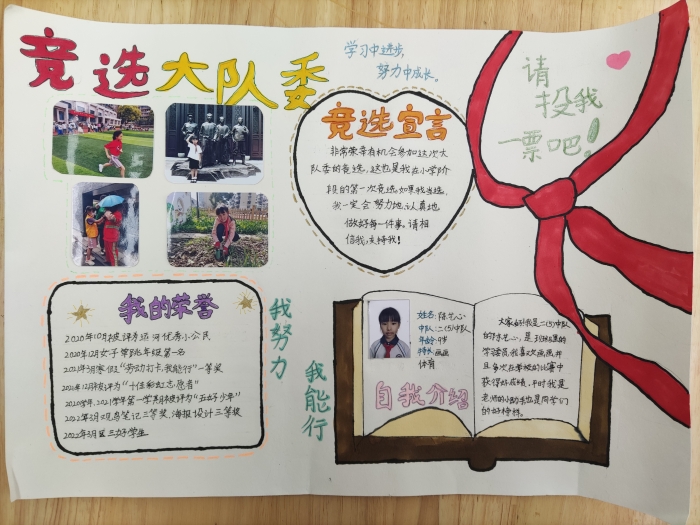 竞选大队委
学习中进步,
努力中成长。
请
投我
一票吧!
竞选宣言
非常荣幸有机会参加这次大
队委的竞选,这也是我在小学阶
段的第一次竞选如果我当选,
我一定会努力地、认真地
做好每一件事。请相
信我,支持我!
我的荣誉
2020年10月被评为运河优秀小公民
2020年12月女子单跳年级第一名
2021年3月寒假"劳动打卡,我能行"一等奖
2021年12月被评为"十佳和虹志愿者"
2020学年,2021学年第一学期被评为"五好少年"
2022年3月观鸟笔记三等奖,海报设计三等奖
2022年3月区三好学生
我努力
我能行
姓名:陈艺心
中队:二(5)中队
年龄:9岁
特长:画画
体育
自我介绍
大家好!我是二(5)中队
的陈艺心,是
学习委员,我喜欢画画,并
且多次在学校的比赛中
获得好成绩,平时我是
老师的小助手也是同学们
的好榜样。